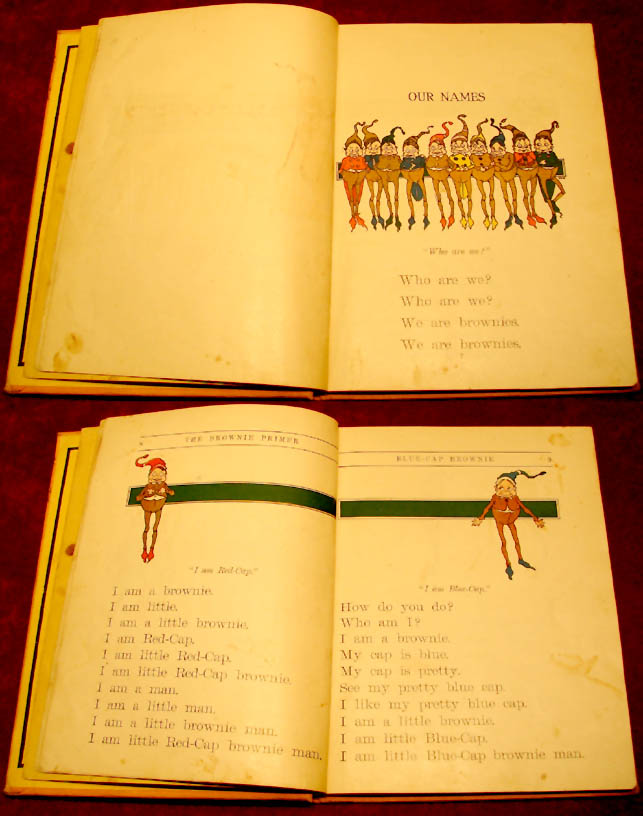 OUR NAMES
"Who are we?"
Who are we?
Who are we?
We are brownies.
We are brownies.
7
8 THE BROWNIE PRIMER
"I am Red-Cap."
I am a brownie.
I am little.
I am a little brownie.
I am Red-Cap.
I am little Red-Cap.
I am little Red-Cap brownie.
I am a man.
I am a little man.
I am a little brownie man.
I am little Red-Cap brownie man.
BLUE-CAP BROWNIE 9
"I am Blue-Cap."
How do you do?
Who am I?
I am a brownie.
My cap is blue.
My cap is pretty.
See my pretty blue cap.
I like my pretty blue cap.
I am a little brownie.
I am little Blue-Cap.
I am little Blue-Cap brownie man.